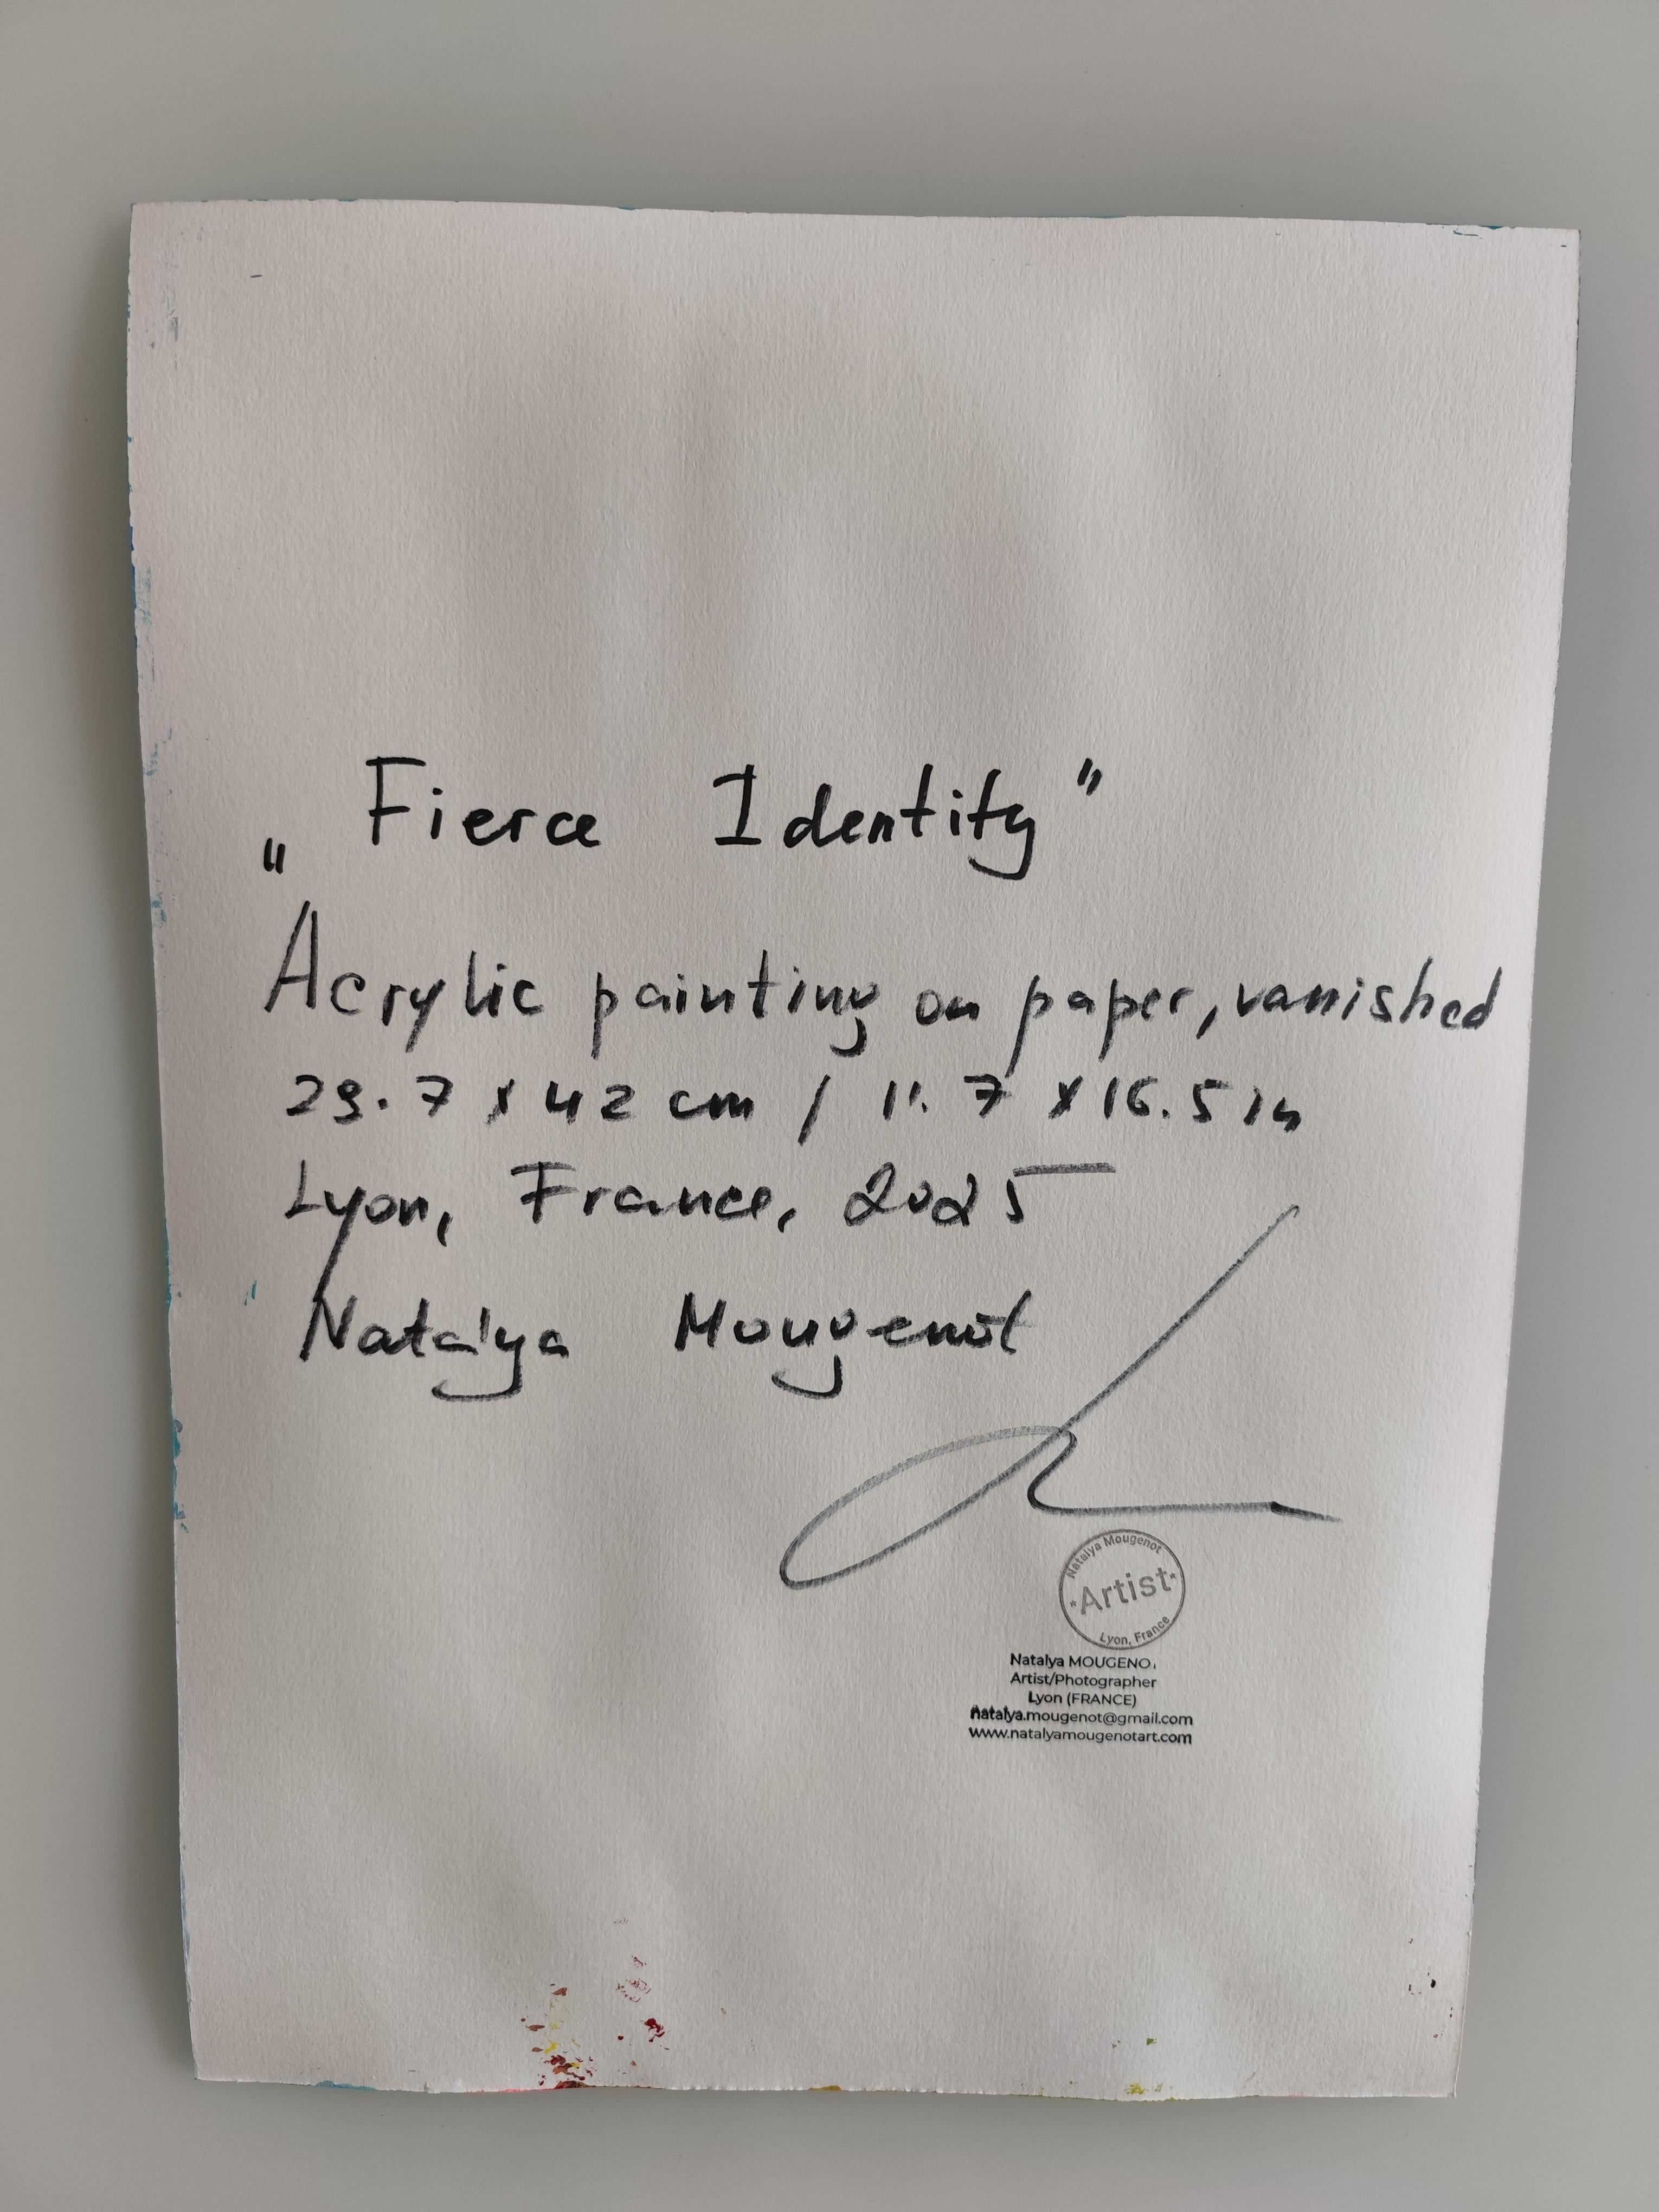 „Fierce Identity"
Acrylic painting on paper, vanished
29.7 x 42 cm / 11.7 x 16.5 in
Lyon, France, 2025
Natalya Mougenot
Natalya Mougenot
*Artist*
Lyon, France
Natalya MOUGENOT
Artist/Photographer
Lyon (FRANCE)
natalya.mougenot@gmail.com
www.natalyamougenotart.com